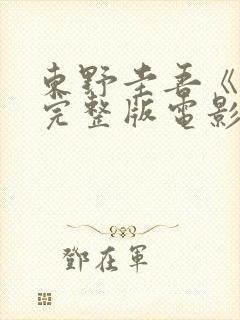 東野圭吾《
完整版電影
鄧在軍